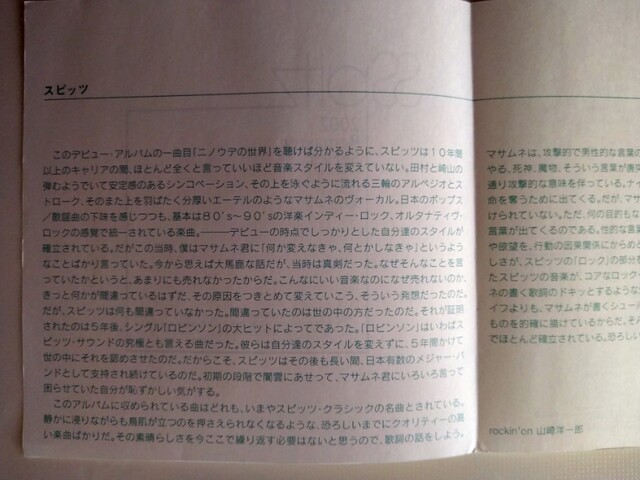 スピッツ
このデビュー・アルバムの一曲目「ニノウデの世界」を聴けば分かるように、スピッツは10年間
以上のキャリアの間、ほとんど全くと言っていいほど音楽スタイルを変えていない。田村と崎山の
弾むようでいて安定感のあるシンコペーション、その上を泳ぐように流れる三輪のアルペジオとス
トローク、そのまた上を羽ばたく分厚いエーテルのようなマサムネのヴォーカル。日本のポップス
/歌謡曲の下味を感じつつも、基本は80's〜90'sの洋楽インディー・ロック、オルタナティヴ・
ロックの感覚で統一されている楽曲。――デビューの時点でしっかりとした自分達のスタイルが
確立されている。だがこの当時、僕はマサムネ君に「何か変えなきゃ、何とかしなきゃ」というよう
なことばかり言っていた。今から思えば大馬鹿な話だが、当時は真剣だった。なぜそんなことを言
っていたかというと、あまりにも売れなかったからだ。こんなにいい音楽なのになぜ売れないのか、
きっと何かが間違っているはずだ、その原因をつきとめて変えていこう、そういう発想だったのだ。
だが、スピッツは何も間違っていなかった。間違っていたのは世の中の方だったのだ。それが証明
されたのは5年後、シングル「ロビンソン」の大ヒットによってであった。「ロビンソン」はいわばス
ピッツ・サウンドの究極とも言える曲だった。彼らは自分達のスタイルを変えずに、5年間かけて
世の中にそれを認めさせたのだ。だからこそ、スピッツはその後も長い間、日本有数のメジャー・バ
ンドとして支持され続けているのだ。初期の段階で闇雲にあせって、マサムネ君にいろいろ言って
困らせていた自分が恥ずかしい気がする。
このアルバムに収められている曲はどれも、いまやスピッツ・クラシックの名曲とされている。
静かに浸りながらも鳥肌が立つのを押さえられなくなるような、恐ろしいまでにクオリティーの高
い楽曲ばかりだ。その素晴らしさを今ここで繰り返す必要はないと思うので、歌詞の話をしよう。
マサムネは、攻撃的で男性的な言葉の
やる、死神、魔物、そういう言葉が唐突
通り攻撃的な意味を伴っている。ナイ
命を奪うために出てくる。だが、マサ
けられていない。ただ、何の目的もな
言葉が出てくるのである。性的な言
や欲望を、行動の因果関係からめ
しさが、スピッツの「ロック」の部分
たスピッツの音楽が、コアなロック
ネの書く歌詞のドキッとするような
イフよりも、マサムネが書くシュー
ものを的確に描けているからだ。そ
でほとんど確立されている。恐ろしい
rockin'on 山崎洋一郎